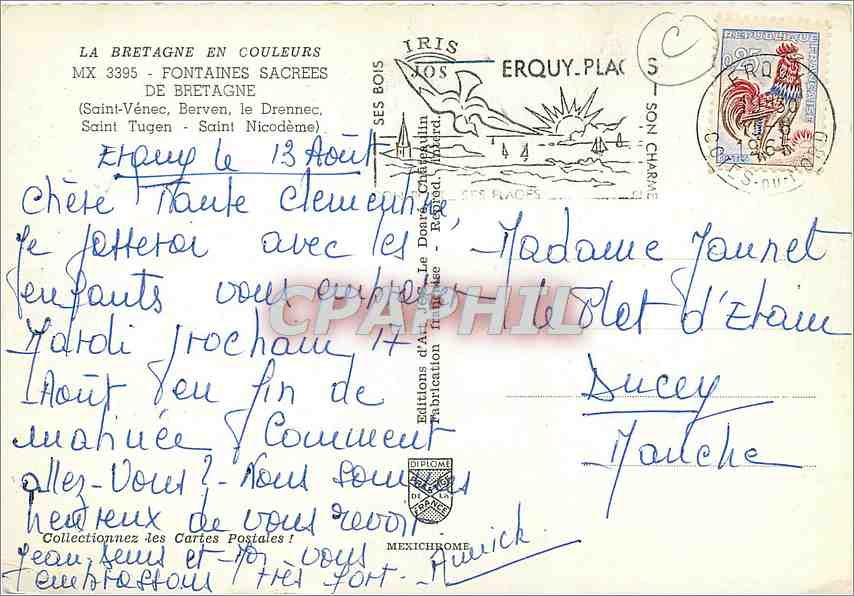 LA BRETAGNE EN COULEURS
MX 3395 - FONTAINES SACREES
DE BRETAGNE
(Saint-Vénec, Berven, le Drennec,
Saint Tugen - Saint Nicodème)
IRIS
JOS
SES BOIS
ERQUY-PLAGES
SON CHARME
SES PLAGES
C
REPUBLIQUE FRANÇAISE
0,25
ERQUY
19H30
1965
COTES-DU-NORD
Erquy le 13 Août
Chère Tante Clementine,
Je passerai avec les
enfants vous embrasser
Mardi prochain 17
Août en fin de
matinée. Comment
allez-Vous? - Nous sommes
heureux de vous revoir
Jean, Denis et Moi vous
embrassons très fort -
Annick
Editions d'Art Jos Le Doaré, Châteaulin
Fabrication française - Reprod. Interd.
CPAPHIL
Madame Jaunet
Le Plat d'Etain
Ducey
Manche
DIPLOME
PRESTIGE
DE LA
FRANCE
Collectionnez les Cartes Postales !
MEXICHROME